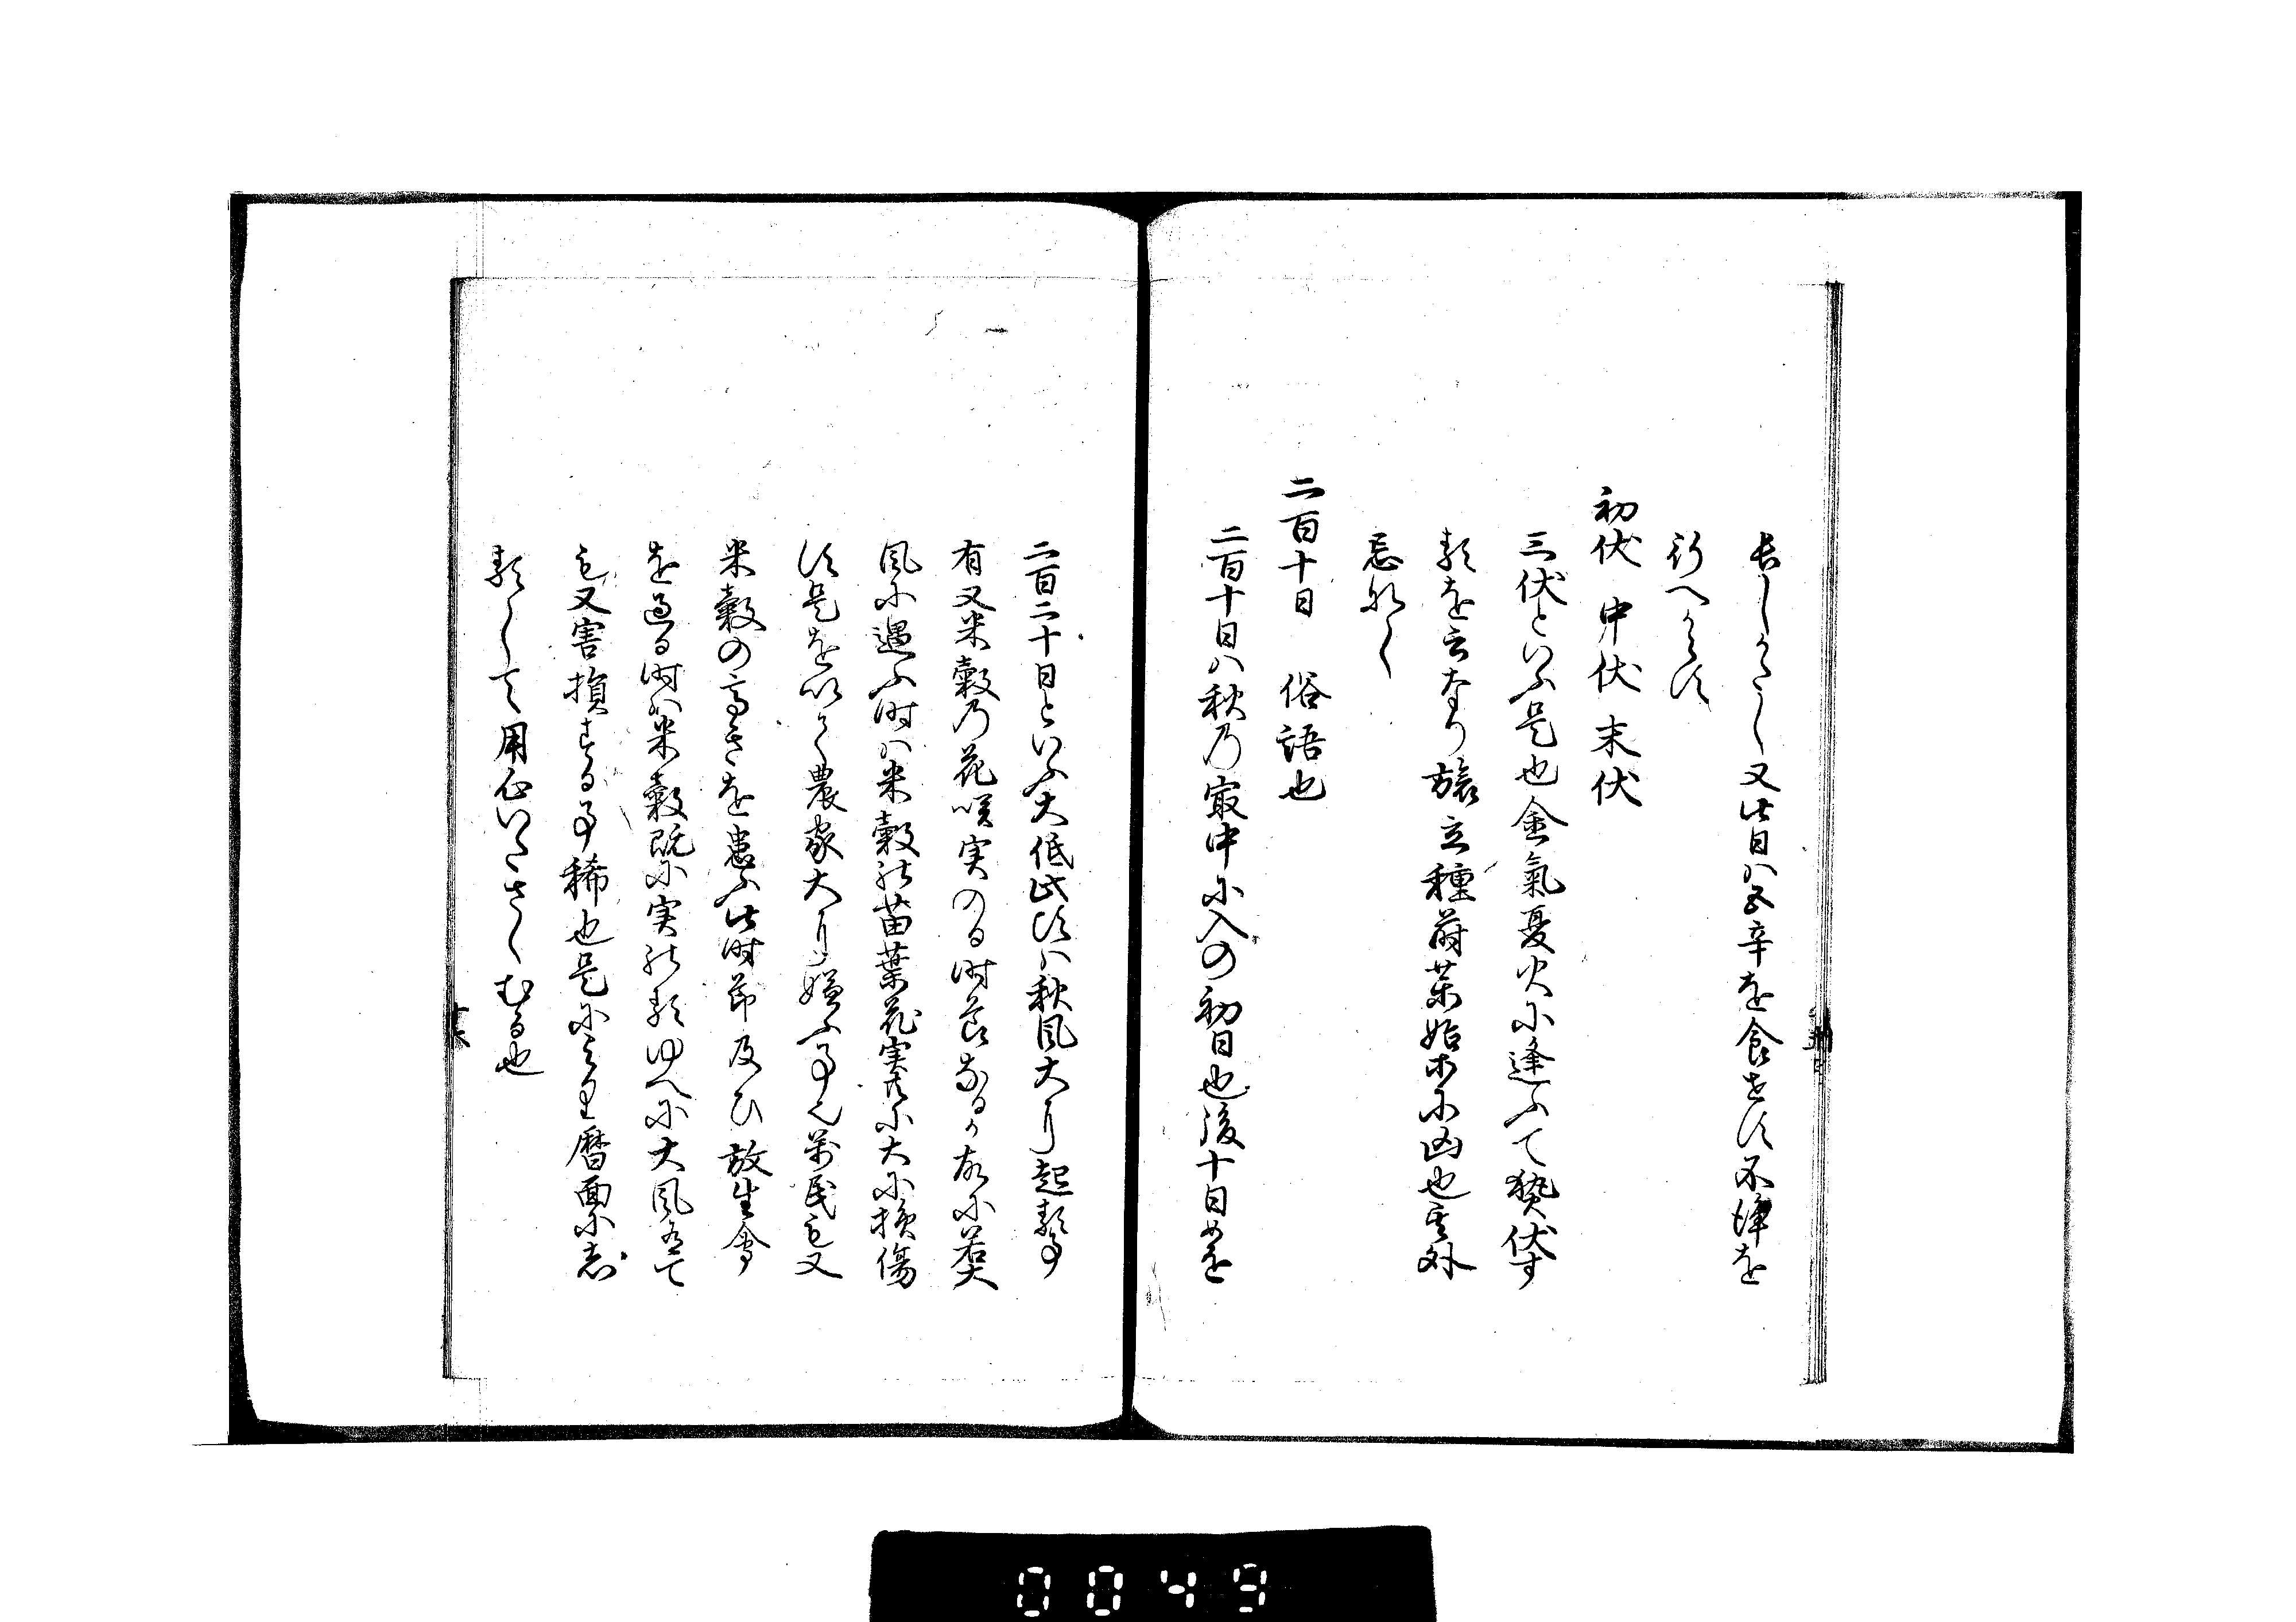 長しかたし又此日ハ五辛を食せす不浄を
行へからす
初伏 中伏 末伏
三伏といふ是也金氣憂火に逢ふて蟄伏す
るを云なり旅立種蒔菜始末に凶也其外
忌なく
二百十日 俗語也
二百十日ハ秋乃最中に入の初日也後十日めを
二百二十日といふ大低此頃ハ秋風大に起る事
有又米穀乃花咲実のる時節なるか故に若大
風に遇ふ時ハ米穀の苗葉花実共に大に損傷
す是を以て農家大に嫌ふ事也萬民も又
米穀の高きを患ふ此時節及ひ放生會
を過る時ハ米穀既に実のるゆへに大風有て
も又害損する事稀也是により暦面に志
るして用心いたさしむる也
0049